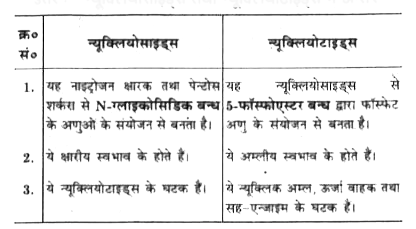 क्र०
सं०
न्यूक्लियोसाइड्स
न्यूक्लियोटाइड्स
1.
यह नाइट्रोजन क्षारक तथा पेन्टोस
शर्करा से N-ग्लाइकोसिडिक बन्ध
के अणुओं के संयोजन से बनता है।
यह न्यूक्लियोसाइड्स से
5-फॉस्फोएस्टर बन्ध द्वारा फॉस्फेट
अणु के संयोजन से बनता है।
2.
ये क्षारीय स्वभाव के होते हैं।
ये अम्लीय स्वभाव के होते हैं।
3.
ये न्यूक्लियोटाइड्स के घटक हैं।
ये न्यूक्लिक अम्ल, ऊर्जा वाहक तथा
सह-एन्जाइम के घटक हैं।